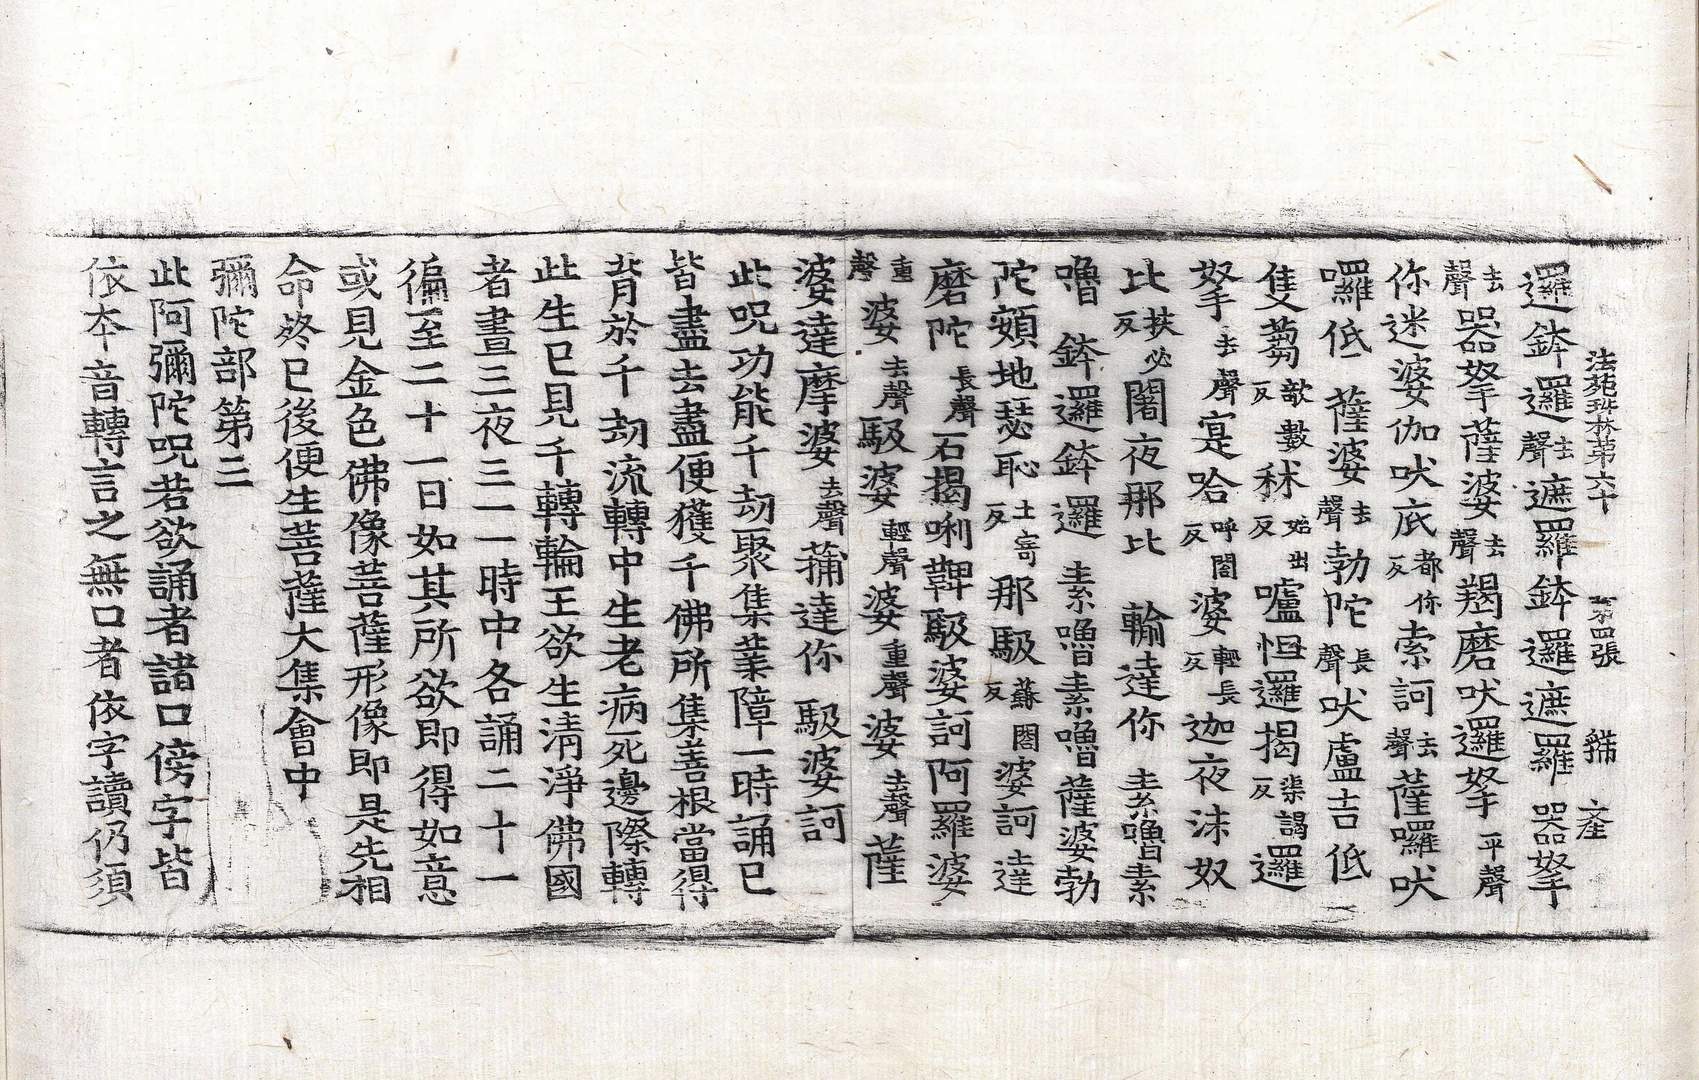 法苑珠林第六十 第四張 産
邏鉢邏去聲遮羅鉢邏遮羅 器拏
去聲器拏薩婆去聲羯磨吠邏拏平聲
你迷婆伽吠底都你反索訶去聲薩囉吠
囉低 薩婆去聲勃陀長聲吠盧吉低
隻蒭敵數反秫始出反嚧怛邏揭渠謁反邏
拏去聲寔哈呼閤反婆輕長反迦夜沫奴
比扶必反闍夜那比 輸達你 素嚕素
嚕 鉢邏鉢邏 素嚕素嚕薩婆勃
陀頞地瑟恥土寄反那馺蘇閤反婆訶達
磨陀長聲石揭唎鞞馺婆訶阿羅婆
重聲婆去聲馺婆輕聲婆重聲婆去聲薩
婆達摩婆去聲蒱達你 馺婆訶
此呪功能千劫聚集業障一時誦已
皆盡去盡便獲千佛所集善根當得
背於千劫流轉中生老病死邊際轉
此生已見千轉輪王欲生清淨佛國
者晝三夜三一時中各誦二十一
徧至二十一日如其所欲即得如意
或見金色佛像菩薩形像即是先相
命終已後便生菩薩大集會中
彌陀部第三
此阿彌陀呪若欲誦者諸口傍字皆
依本音轉言之無口者依字讀仍須